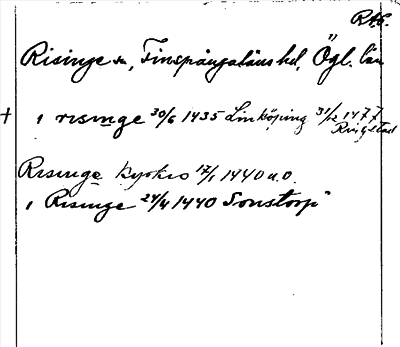 RAP.
Risinge sn, Finspångaläns hd, Ögl. län
† i risinge 30/6 1435 Linköping 31/12 1477
Ringstad
Risinge kyrkio 17/1 1440 u.o.
i Risinge 24/4 1440 Sonstorp